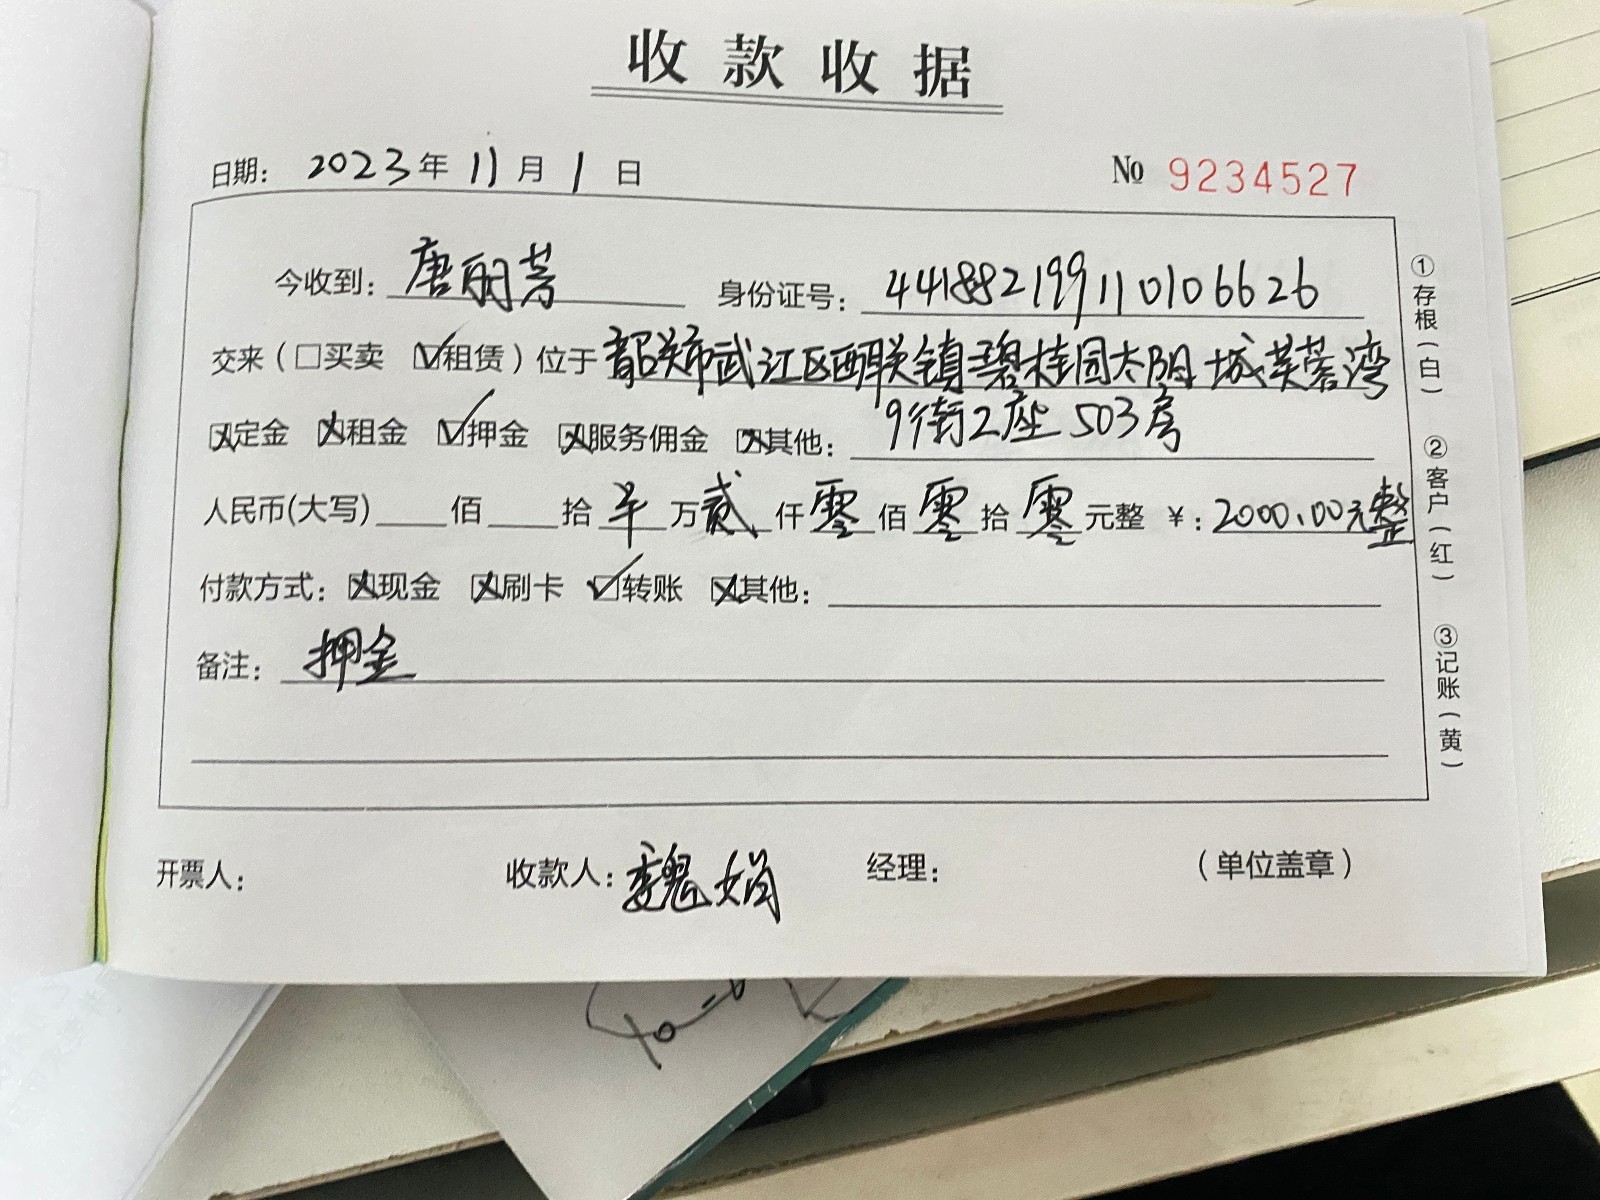 收款收据
日期: 2023年 11月 1日 № 9234527
今收到: 唐丽芳 身份证号: 441882199110106626
交来(□买卖 ☑租赁)位于 韶关市武江区西联镇碧桂园太阳城芙蓉湾
☒定金 ☒租金 ☑押金 ☒服务佣金 ☒其他: 9街2座503房
人民币(大写) 佰 拾 万贰仟零佰零拾零元整 ¥: 2000.00元整
付款方式: ☒现金 ☒刷卡 ☑转账 ☒其他:
备注: 押金
开票人: 收款人: 魏娟 经理: (单位盖章)
①存根(白) ②客户(红) ③记账(黄)